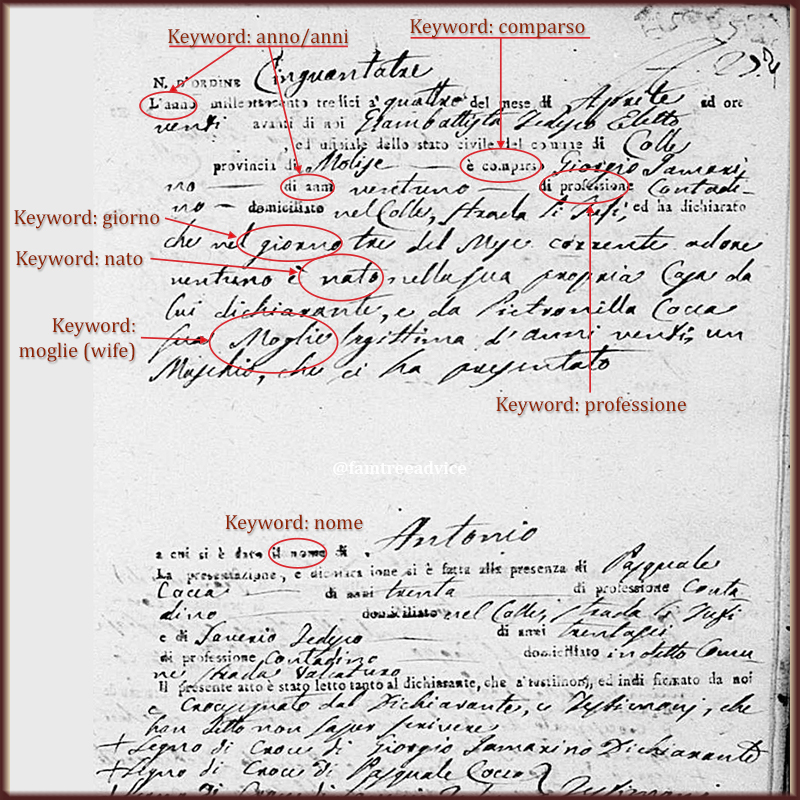 Keyword: anno/anni
Keyword: comparso
N. D'ORDINE Cinquantatre
L'anno milleottocento tredici a' quattro del mese di Aprile ad ore
venti avanti di noi Giambattista Tedesco Eletto
, ed ufiziale dello stato civile del comune di Colle
provincia di Molise è compars Giorgio Iamari
no di anni ventuno di professione Contadi-
no domiciliato nel Colle, strada li Tufi, ed ha dichiarato
Keyword: giorno
che nel giorno tre del Mese corrente ad ore
Keyword: nato
ventuno è nato nella sua propria Casa da
lui dichiarante, e da Pietronilla Cocca
Keyword:
moglie (wife)
sua Moglie legittima d'anni venti, un
Maschio, che ci ha presentato
Keyword: professione
@famtreeadvice
Keyword: nome
a cui si è dato il nome di Antonio
La presentazione, e dichiara ione si è fatta alla presenza di Pasquale
Cocca di anni trenta di professione Conta
dino domiciliato nel Colle, strada li Tufi
e di Saverio Tedesco di anni trentasei
di professione Contadino domiciliato in detto Comu
ne strada
Il presente atto è stato letto tanto al dichiarante, che a' testimonj, ed indi firmato da noi
e Crocesignato dal Dichiarante, e Testimonj, che
han detto non saper scrivere
+ Segno di Croce di Giorgio Iamarino Dichiarante
+ Segno di Croce di Pasquale Cocca
Testimonj